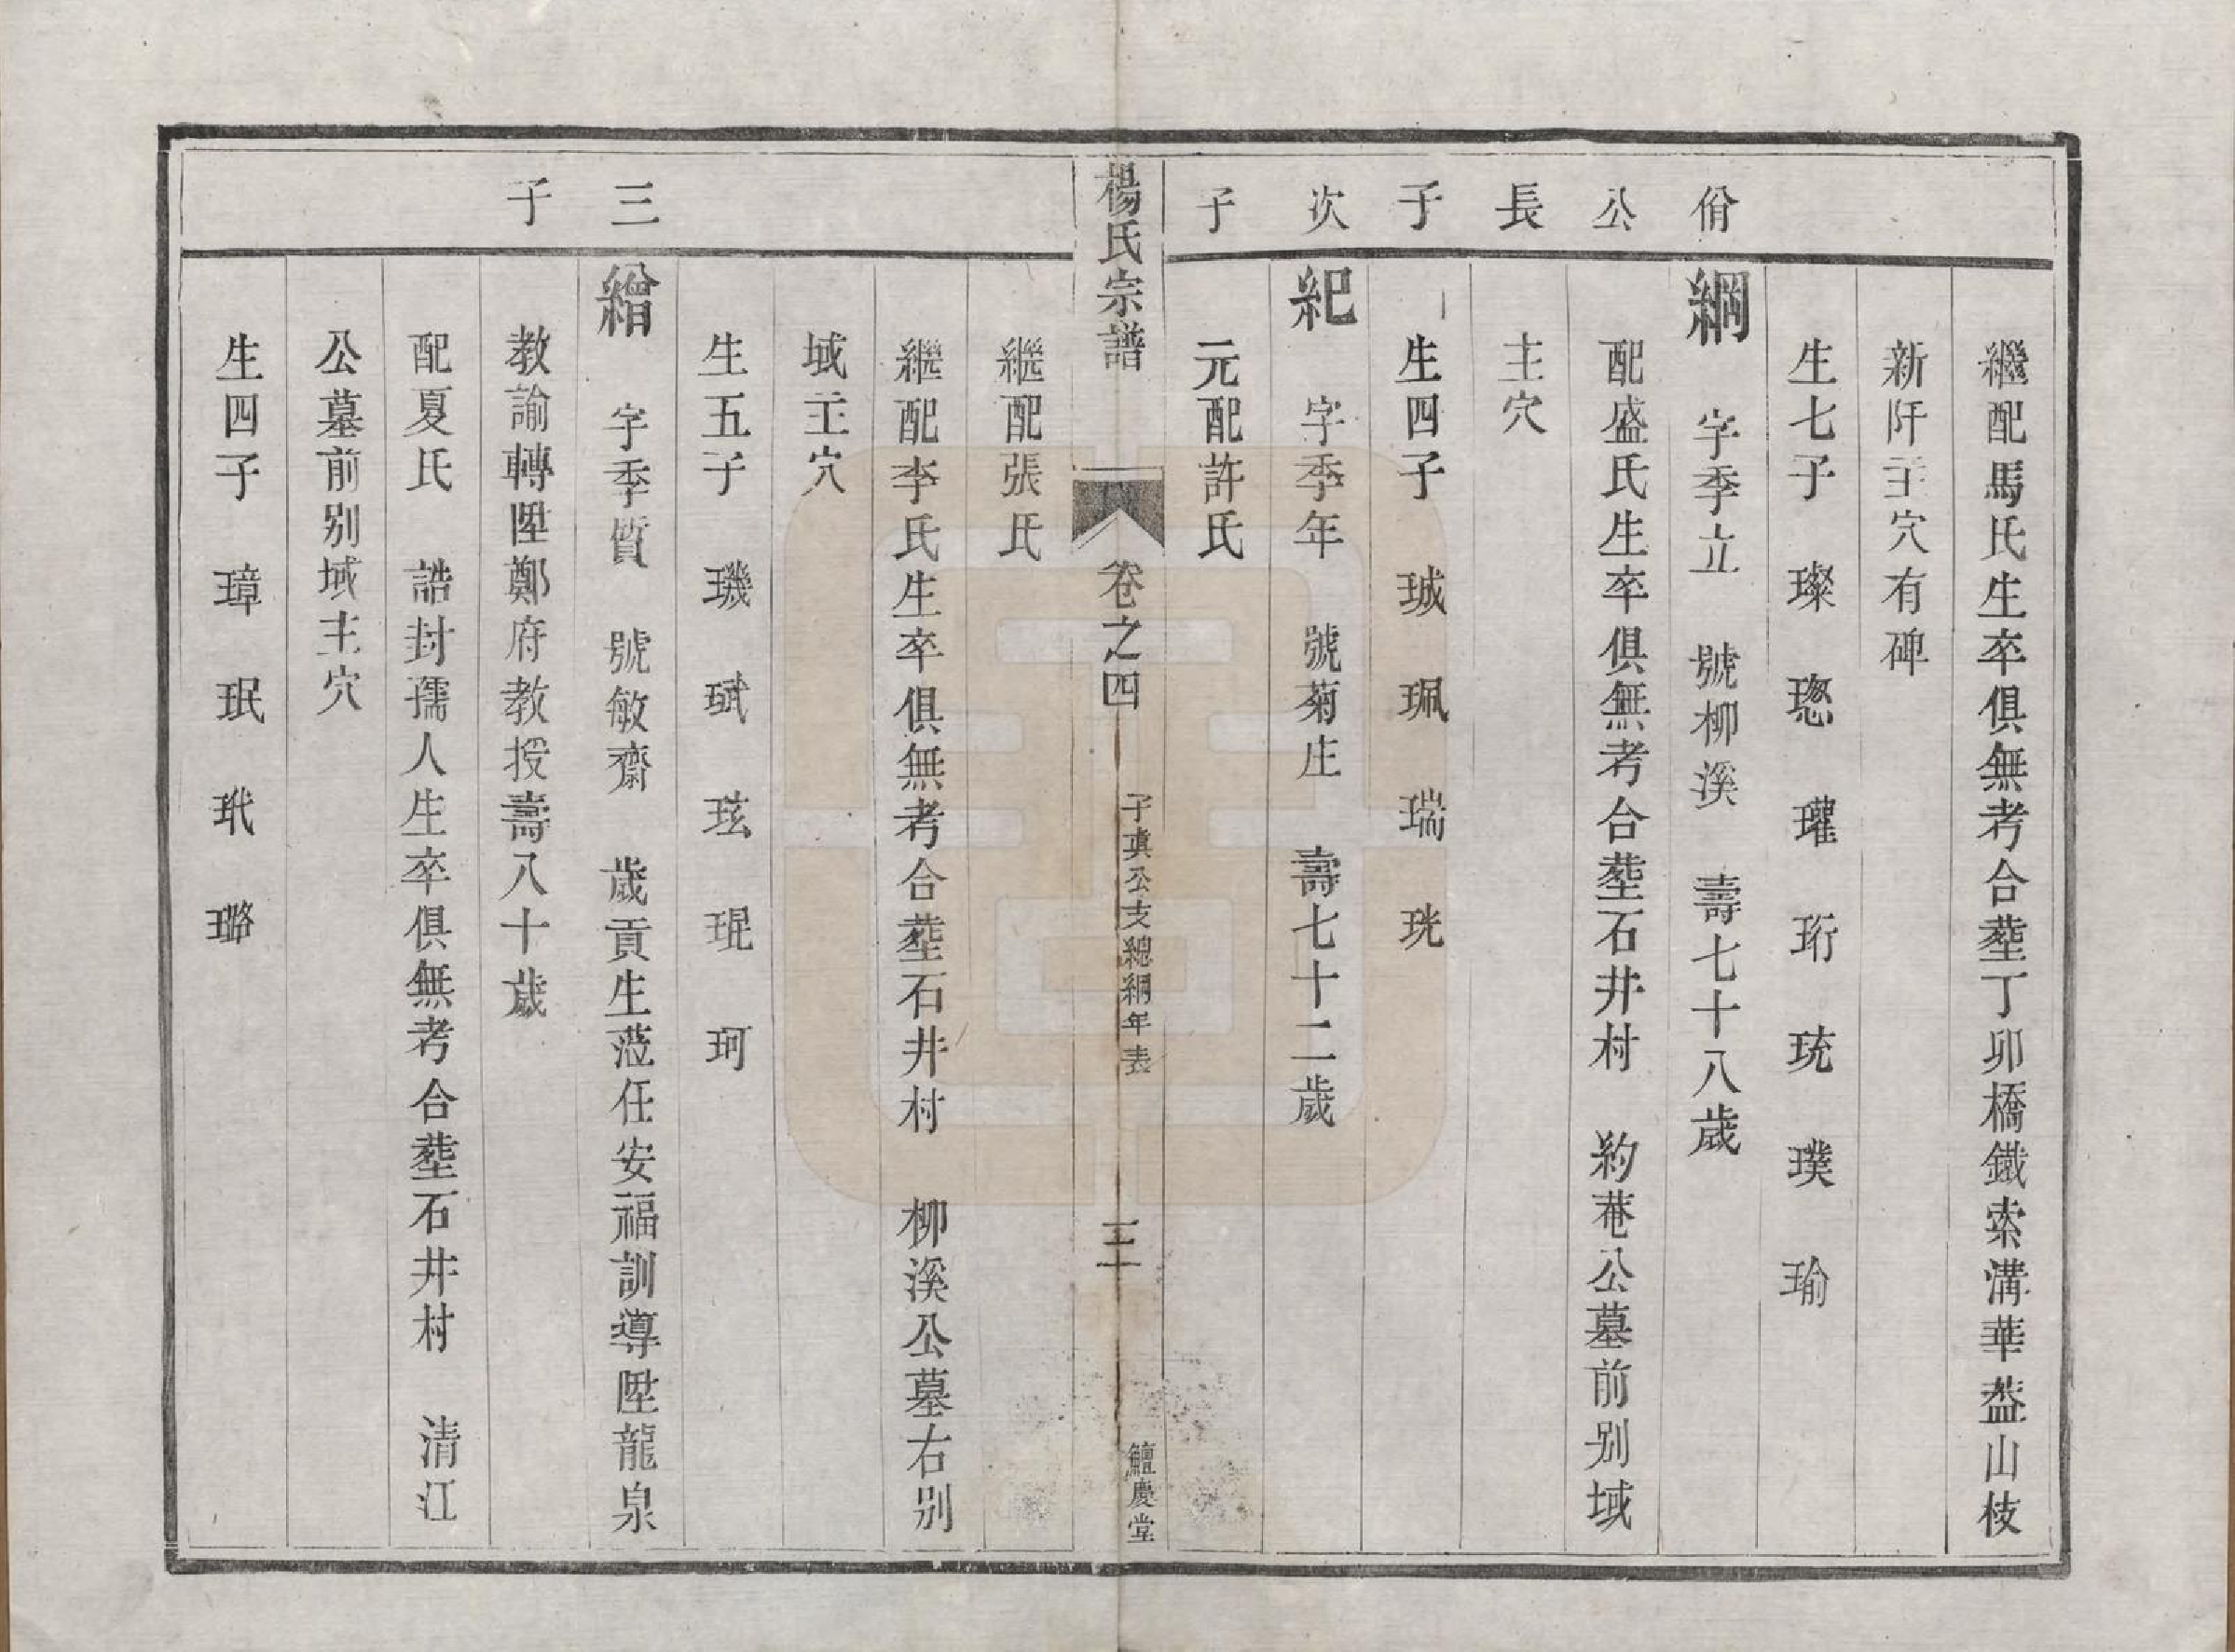 佾公長子
次子
繼配馬氏生卒俱無考合塟丁卯橋鐵索溝華葢山枝
新阡主穴有碑
生七子 璨 璁 瓘 珩 珫 璞 瑜
綱 字季立 號柳溪 壽七十八歲
配盛氏生卒俱無考合塟石井村 約菴公墓前别域
主穴
生四子 珹 珮 瑞 珖
紀 字季年 號菊庄 壽七十二歲
元配許氏
楊氏宗譜 卷之四 子真公支總綱年表 三 鱣慶堂
三子
繼配張氏
繼配李氏生卒俱無考合塟石井村 柳溪公墓右别
域主穴
生五子 璣 珷 玹 琨 珂
繒 字季質 號敏齋 歲貢生蒞任安福訓導陞龍泉
教諭轉陞鄭府教授壽八十歲
配夏氏 誥封孺人生卒俱無考合塟石井村 清江
公墓前别域主穴
生四子 璋 珉 玳 璐